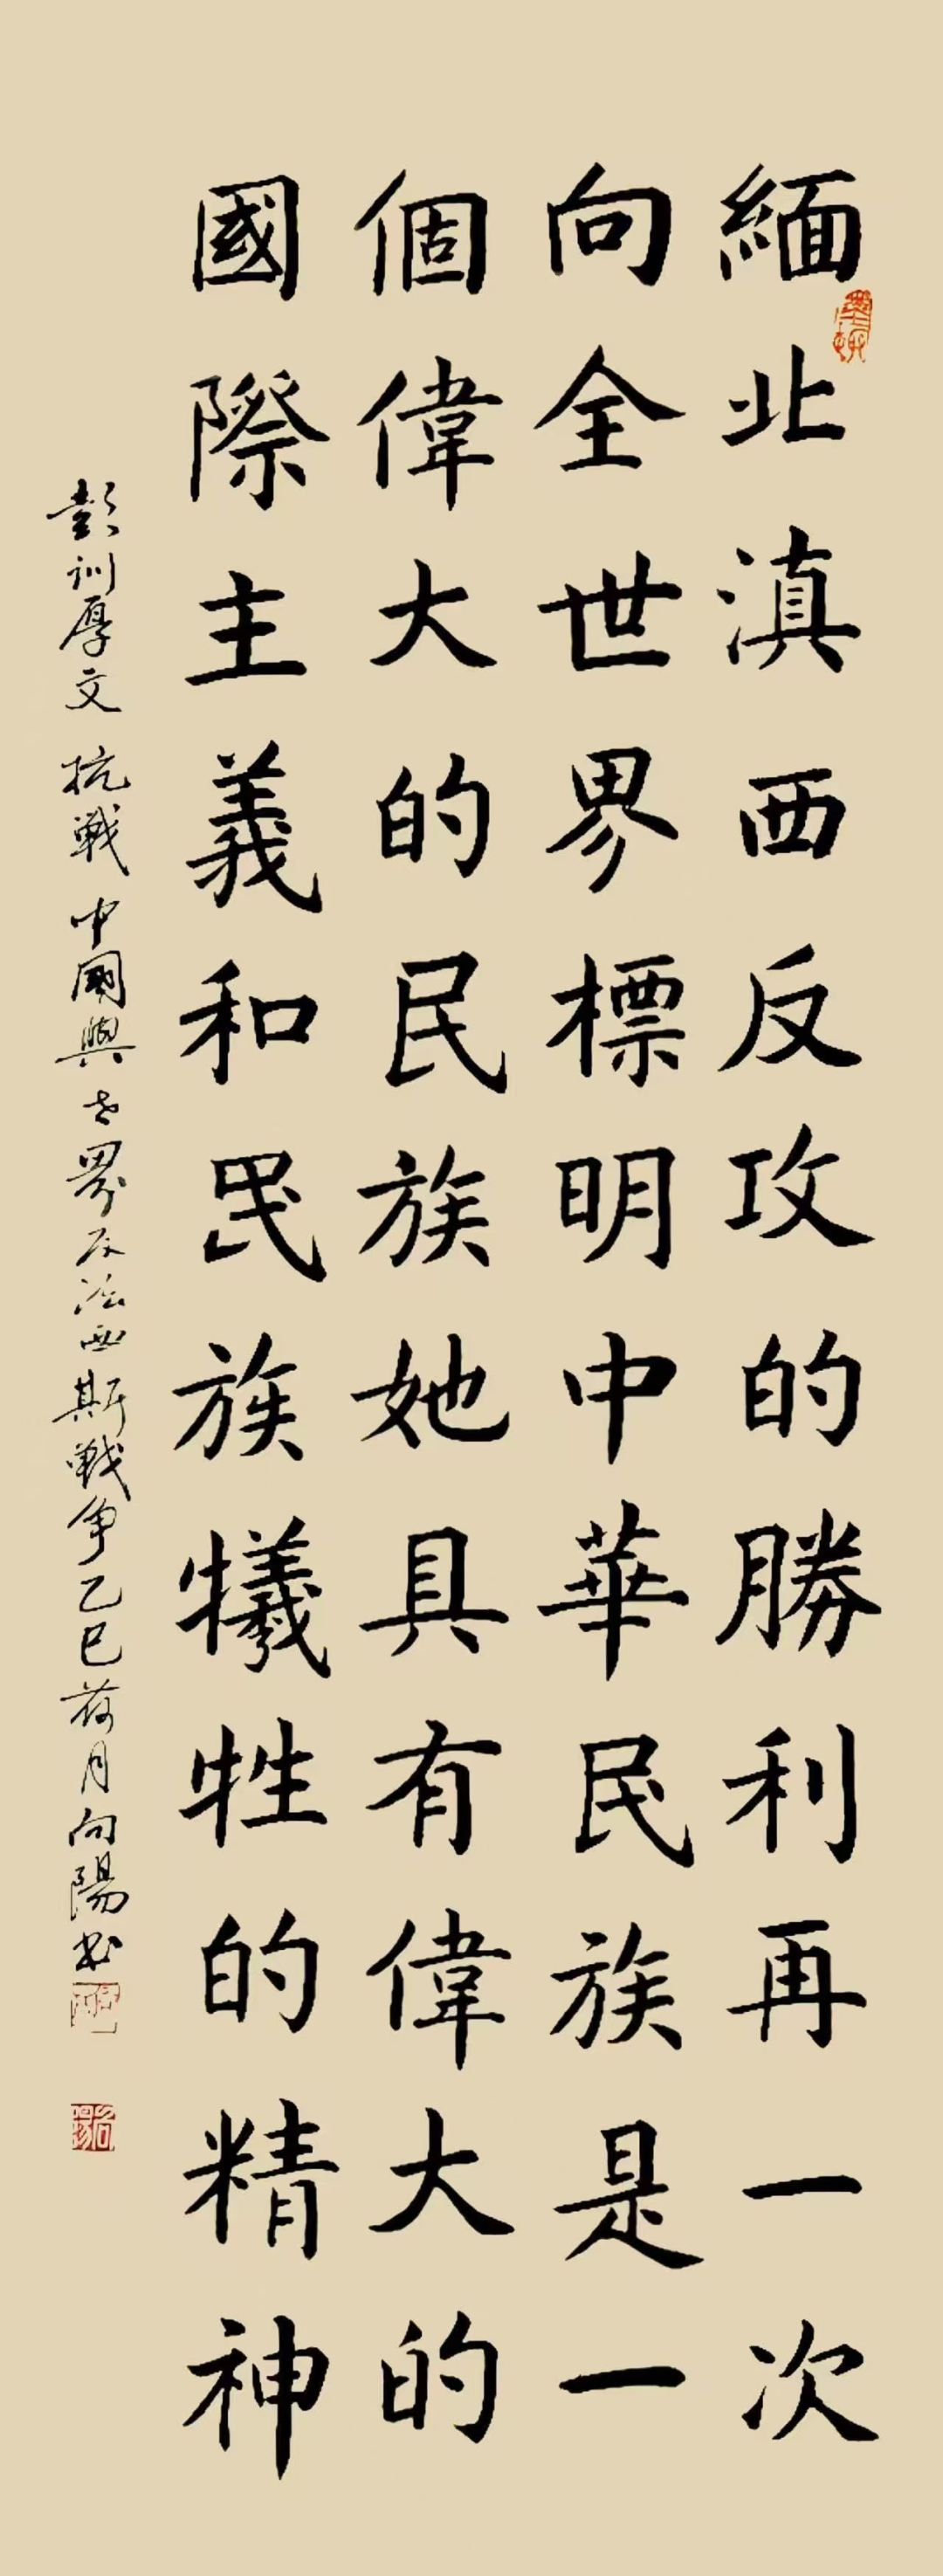 緬北滇西反攻的勝利再一次
向全世界標明中華民族是一
個偉大的民族她具有偉大的
國際主義和民族犧牲的精神
彭训厚文 抗戰 中國與世界反法西斯戰争乙巳荷月向陽书